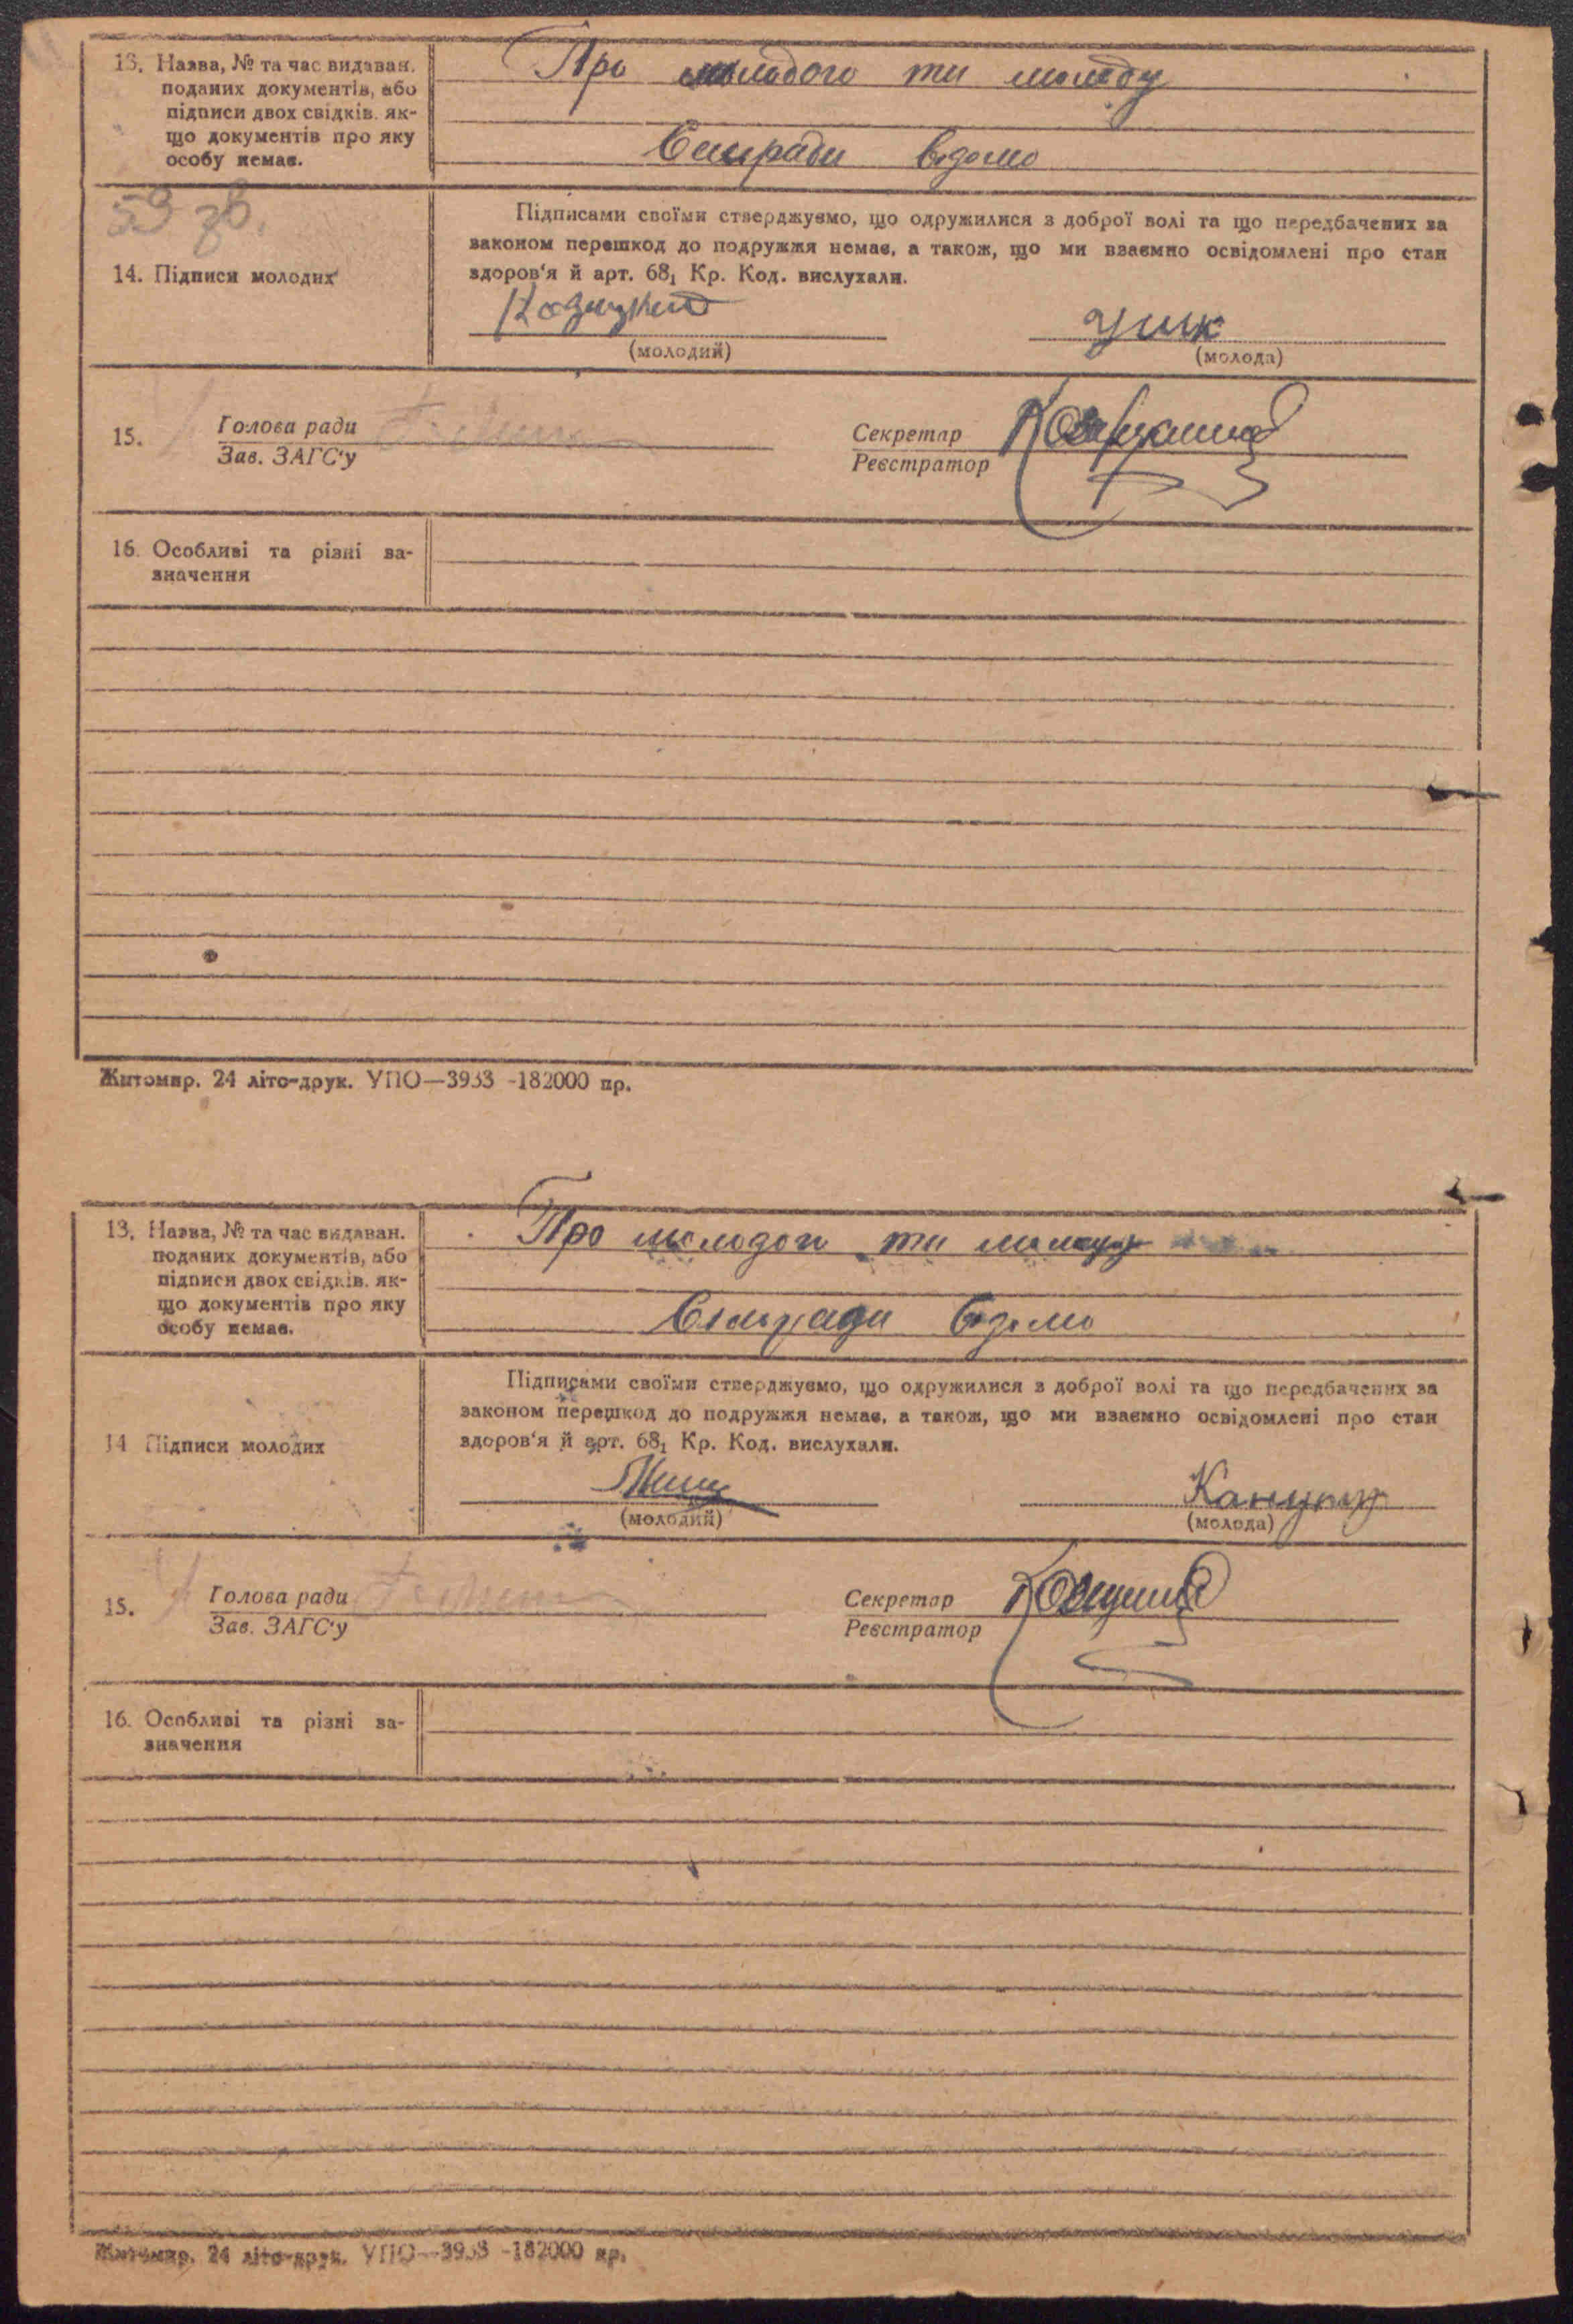 13. Назва, № та час видаван.
поданих документів, або
підписи двох свідків, як-
що документів про яку
особу немає.
Про молодого та молоду
Сільради відомо
59 зв.
14. Підписи молодих
Підписами своїми стверджуємо, що одружилися з доброї волі та що передбачених за
законом перешкод до подружжя немає, а також, що ми взаємно освідомлені про стан
здоров'я й арт. 68₁ Кр. Код. вислухали.
(молодий)
(молода)
15.
Голова ради
Зав. ЗАГС'у
Секретар
Реєстратор
16. Особливі та різні за-
значення
Житомир. 24 літо-друк. УПО—3933 -182000 пр.
13. Назва, № та час видаван.
поданих документів, або
підписи двох свідків, як-
що документів про яку
особу немає.
Про молодого та молоду
Сільради відомо
14 Підписи молодих
Підписами своїми стверджуємо, що одружилися з доброї волі та що передбачених за
законом перешкод до подружжя немає, а також, що ми взаємно освідомлені про стан
здоров'я й арт. 68₁ Кр. Код. вислухали.
(молодий)
(молода)
15.
Голова ради
Зав. ЗАГС'у
Секретар
Реєстратор
16. Особливі та різні за-
значення
Житомир. 24 літо-друк. УПО—3933 -182000 пр.